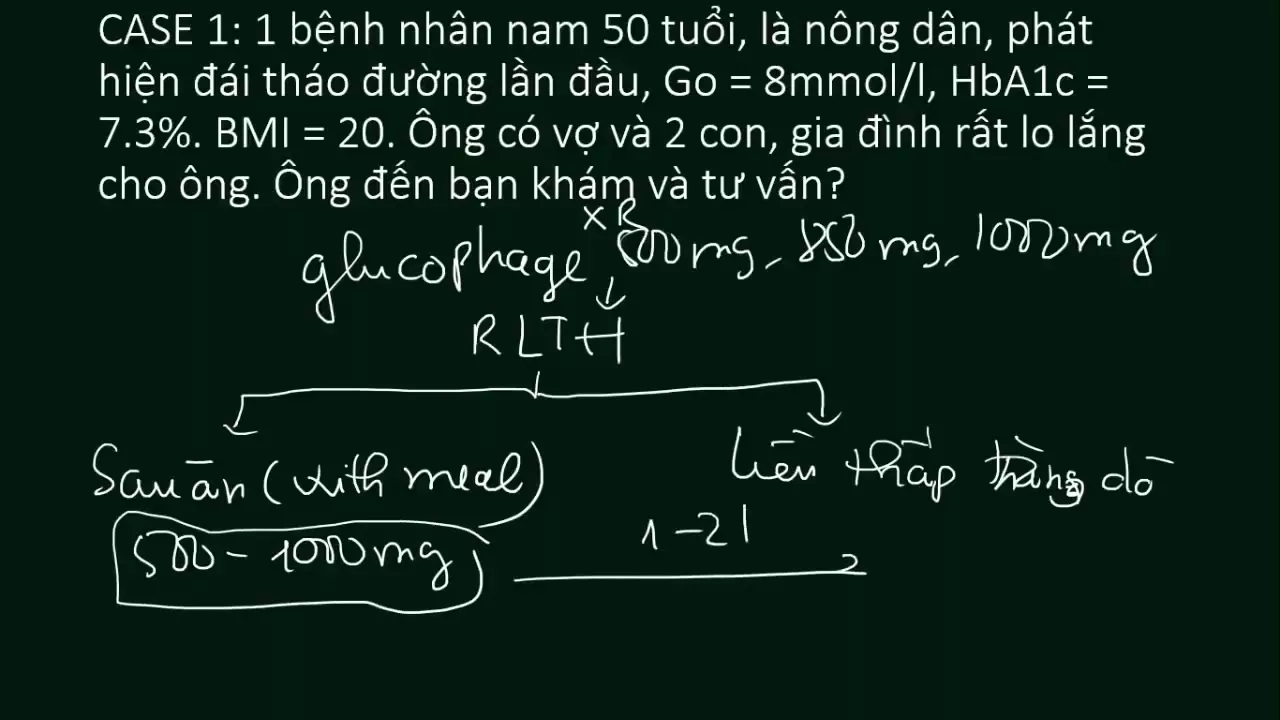 CASE 1: 1 bệnh nhân nam 50 tuổi, là nông dân, phát
hiện đái tháo đường lần đầu, Go = 8mmol/l, HbA1c =
7.3%. BMI = 20. Ông có vợ và 2 con, gia đình rất lo lắng
cho ông. Ông đến bạn khám và tư vấn?
XR
glucophage 500mg, 850mg, 1000mg
RLTH
Sau ăn (with meal)
liều thấp tăng dò
500 - 1000mg
1-2l